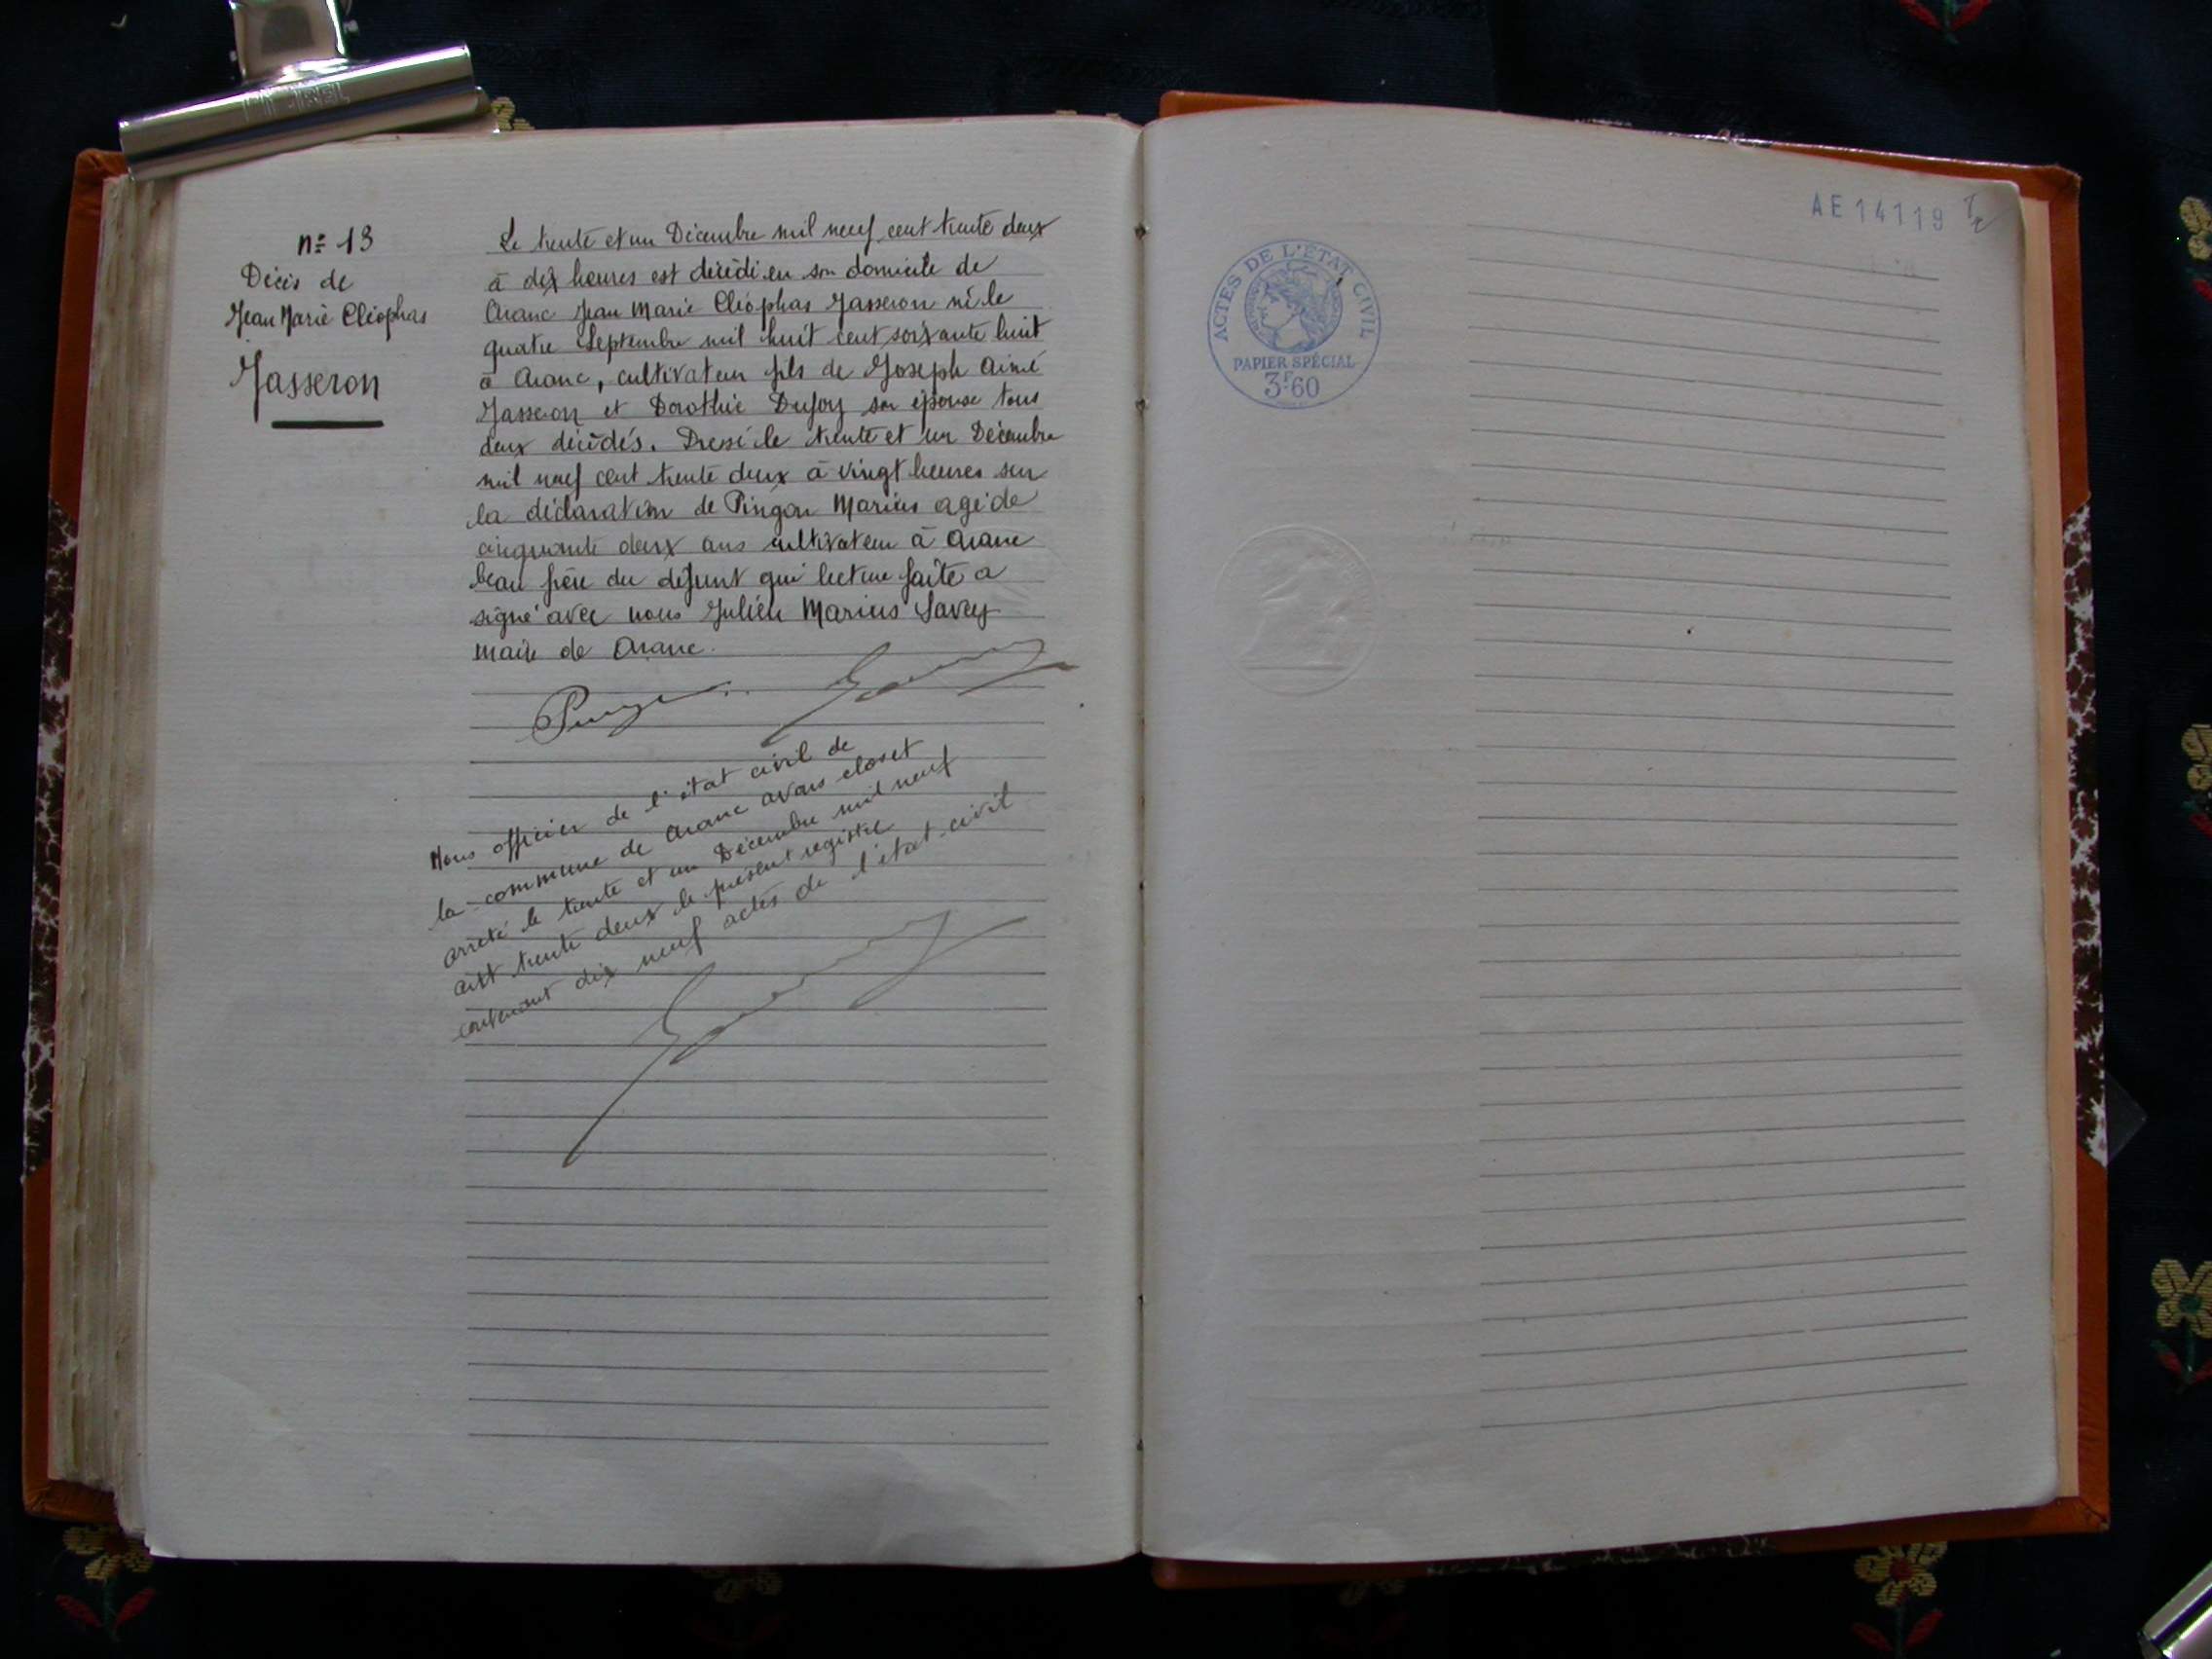 n° 13
Décès de
Jean Marie Cléophas
Jasseron
Le trente et un Décembre mil neuf cent trente deux
à dix heures est décédé en son domicile de
Aranc Jean Marie Cléophas Jasseron né le
quatre Septembre mil huit cent soixante huit
à Aranc, cultivateur fils de Joseph Aimé
Jasseron et Dorothée Dufour son épouse tous
deux décédés. Dressé le trente et un Décembre
mil neuf cent trente deux à vingt heures sur
la déclaration de Pingon Marius agé de
cinquante deux ans cultivateur à Aranc
beau frère du défunt qui lecture faite a
signé avec nous Julien Marius Savey
maire de Aranc.
Nous officier de l'état civil de
la commune de Aranc avons clos et
arrêté le trente et un Décembre mil neuf
cent trente deux le présent registre
contenant dix neuf actes de l'état-civil
AE 14119
ACTES DE L'ETAT CIVIL
PAPIER SPÉCIAL
3F60